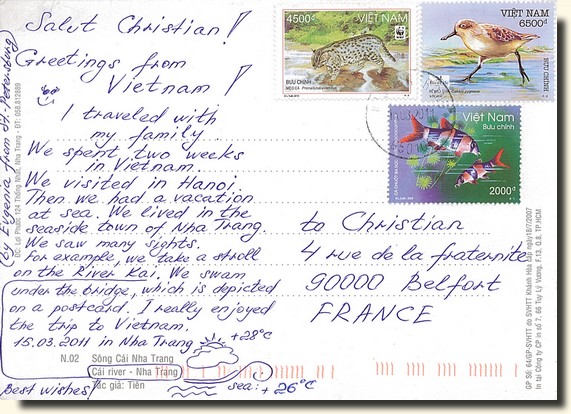 Salut Christian!
Greetings from
Vietnam!
I traveled with
my family
We spent two weeks
in Vietnam.
We visited in Hanoi.
Then we had a vacation
at sea. We lived in the
seaside town of Nha Trang.
We saw many sights.
For example, we take a stroll
on the River Kai. We swam
under the bridge, which is depicted
on a postcard. I really enjoyed
the trip to Vietnam.
15.03.2011 in Nha Trang
+28°C
sea: +26°C
Best wishes!
(by Evgenia from St. Petersburg)
N.02
Sông Cái Nha Trang
Cái river - Nha Trang
Tác giả: Tiên
ĐC: Lại Phước 124 Thống Nhất, Nha Trang - ĐT: 058.812889
4500đ
VIỆT NAM
WWF
BƯU CHÍNH
VIỆT NAM
6500đ
BƯU CHÍNH
Việt Nam
Bưu chính
2000đ
to Christian
4 rue de la fraternité
90000 Belfort
FRANCE
GP Số: 64/GP-SVHTT do SVHTT Khánh Hòa cấp ngày18/7/2007
In tại Công ty CP in số 7, 66 Tuy Lý Vương, F.13, Q.8, TP.HCM